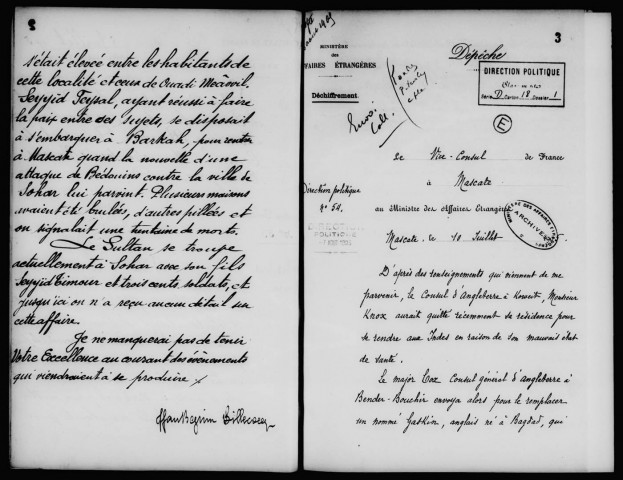 2
s'était élevée entre les habitants de
cette localité et ceux de Ouadi Meâovil.
Seyyid Feysal, ayant réussi à faire
la paix entre ses sujets, se disposait
à s'embarquer à Barkah, pour rentrer
à Mascate quand la nouvelle d'une
attaque de Bédouins contre la ville de
Sohar lui parvint. Plusieurs maisons
avaient été brulées, d'autres pillées et
on signalait une trentaine de morts.
Le Sultan se trouve
actuellement à Sohar avec son fils
Seyyid Timour et trois cents soldats, et
jusqu'ici on n'a reçu aucun détail sur
cette affaire.
Je ne manquerai pas de tenir
Votre Excellence au courant des évènements
qui viendraient à se produire
3
MINISTÈRE
des
FFAIRES ÉTRANGÈRES
Déchiffrement.
Dépêche
DIRECTION POLITIQUE
Série D Carton 18 Dossier 1
E
Le Vice-Consul de France
à Mascate
Direction politique
N° 54.
au Ministre des Affaires Etrangères
ARCHIVES
DIRECTION
POLITIQUE
Mascate, le 10 Juillet
D'après des renseignements qui viennent de me
parvenir, le Consul d'Angleterre à Koweit, Monsieur
Knox aurait quitté récemment sa résidence pour
se rendre aux Indes en raison de son mauvais état
de santé.
Le major Cox Consul général d'Angleterre à
Bender-Bouchir envoya alors pour le remplacer
un nommé Gaskin, anglais né à Bagdad, qui